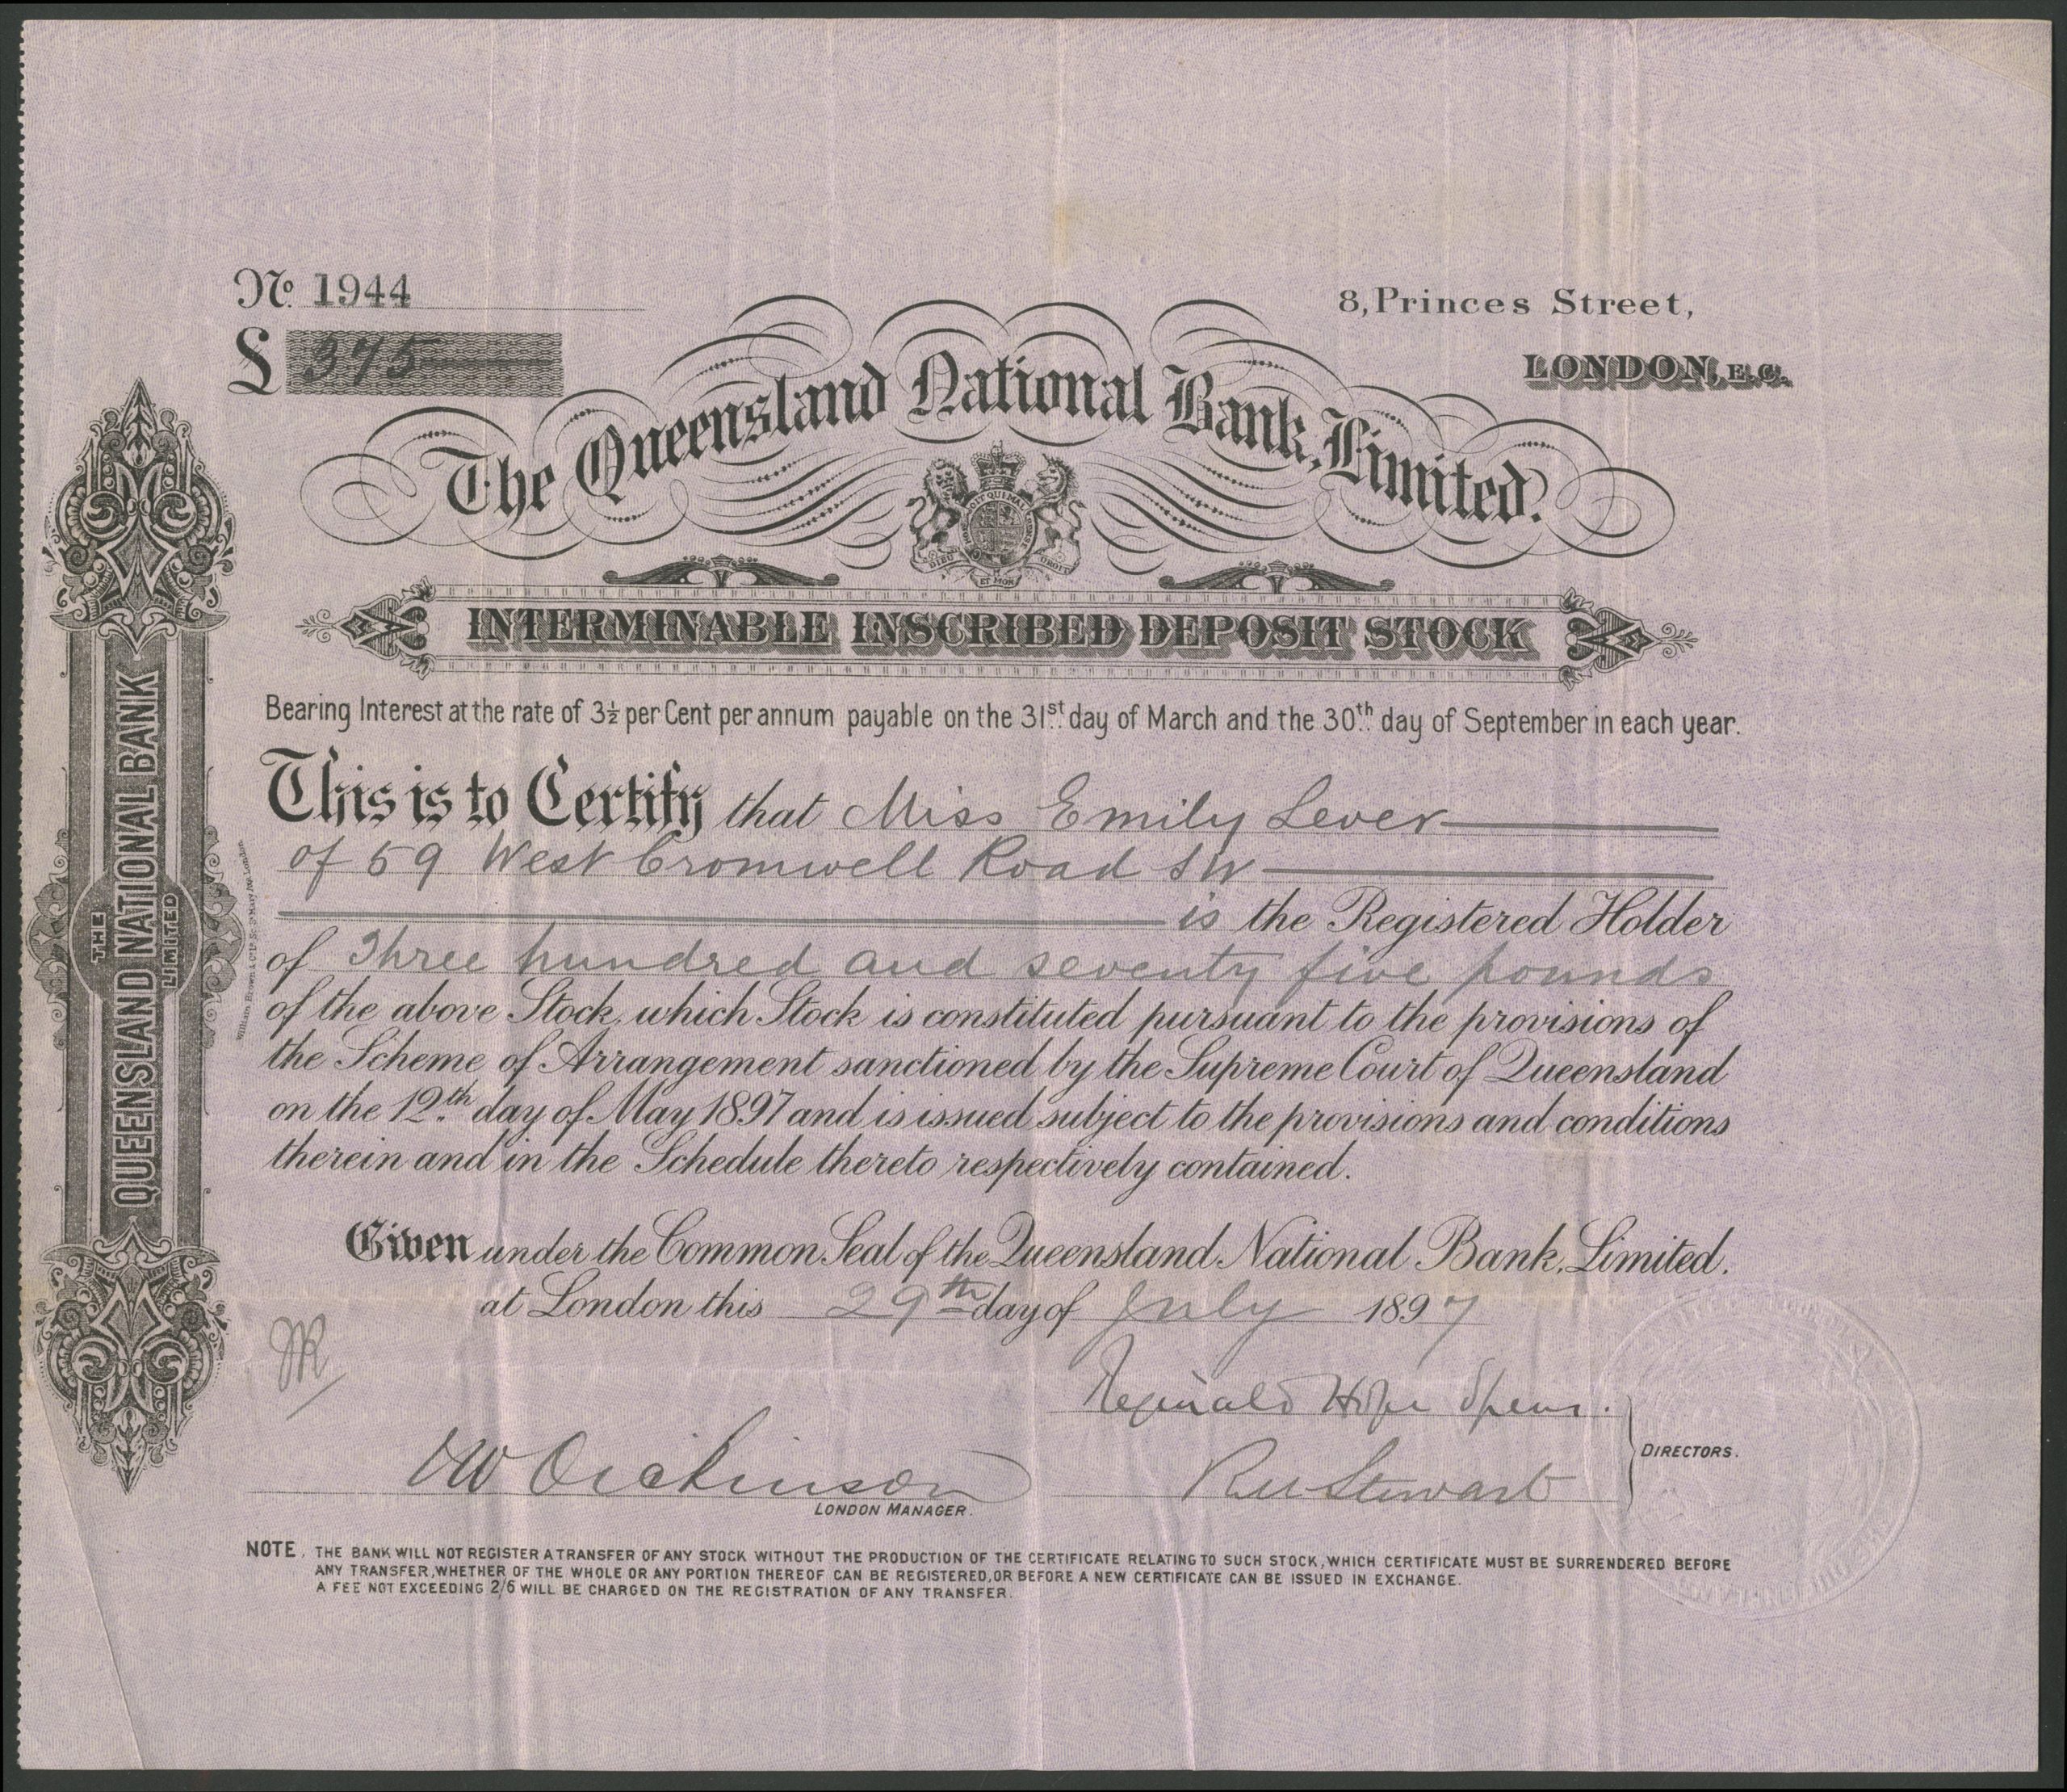 No. 1944
8, Princes Street,
£ 375
LONDON, E.C.
The Queensland National Bank, Limited.
HONI SOIT QUI MAL Y PENSE
DIEU ET MON DROIT
INTERMINABLE INSCRIBED DEPOSIT STOCK
Bearing Interest at the rate of 3½ per Cent per annum payable on the 31st day of March and the 30th day of September in each year.
This is to Certify that Miss Emily Lever
of 59 West Cromwell Road SW
is the Registered Holder
of Three hundred and seventy five pounds
of the above Stock, which Stock is constituted pursuant to the provisions of
the Scheme of Arrangement sanctioned by the Supreme Court of Queensland
on the 12th day of May 1897 and is issued subject to the provisions and conditions
therein and in the Schedule thereto respectively contained.
Given under the Common Seal of the Queensland National Bank, Limited.
at London this 29th day of July 1897
Reginald Hope Spens.
DIRECTORS.
Dickinson
Stewart
LONDON MANAGER.
NOTE. THE BANK WILL NOT REGISTER A TRANSFER OF ANY STOCK WITHOUT THE PRODUCTION OF THE CERTIFICATE RELATING TO SUCH STOCK, WHICH CERTIFICATE MUST BE SURRENDERED BEFORE
ANY TRANSFER, WHETHER OF THE WHOLE OR ANY PORTION THEREOF CAN BE REGISTERED, OR BEFORE A NEW CERTIFICATE CAN BE ISSUED IN EXCHANGE.
A FEE NOT EXCEEDING 2/6 WILL BE CHARGED ON THE REGISTRATION OF ANY TRANSFER.
THE
QUEENSLAND NATIONAL BANK
LIMITED
William Brown & Co. Ld. St. Mary Axe, London.